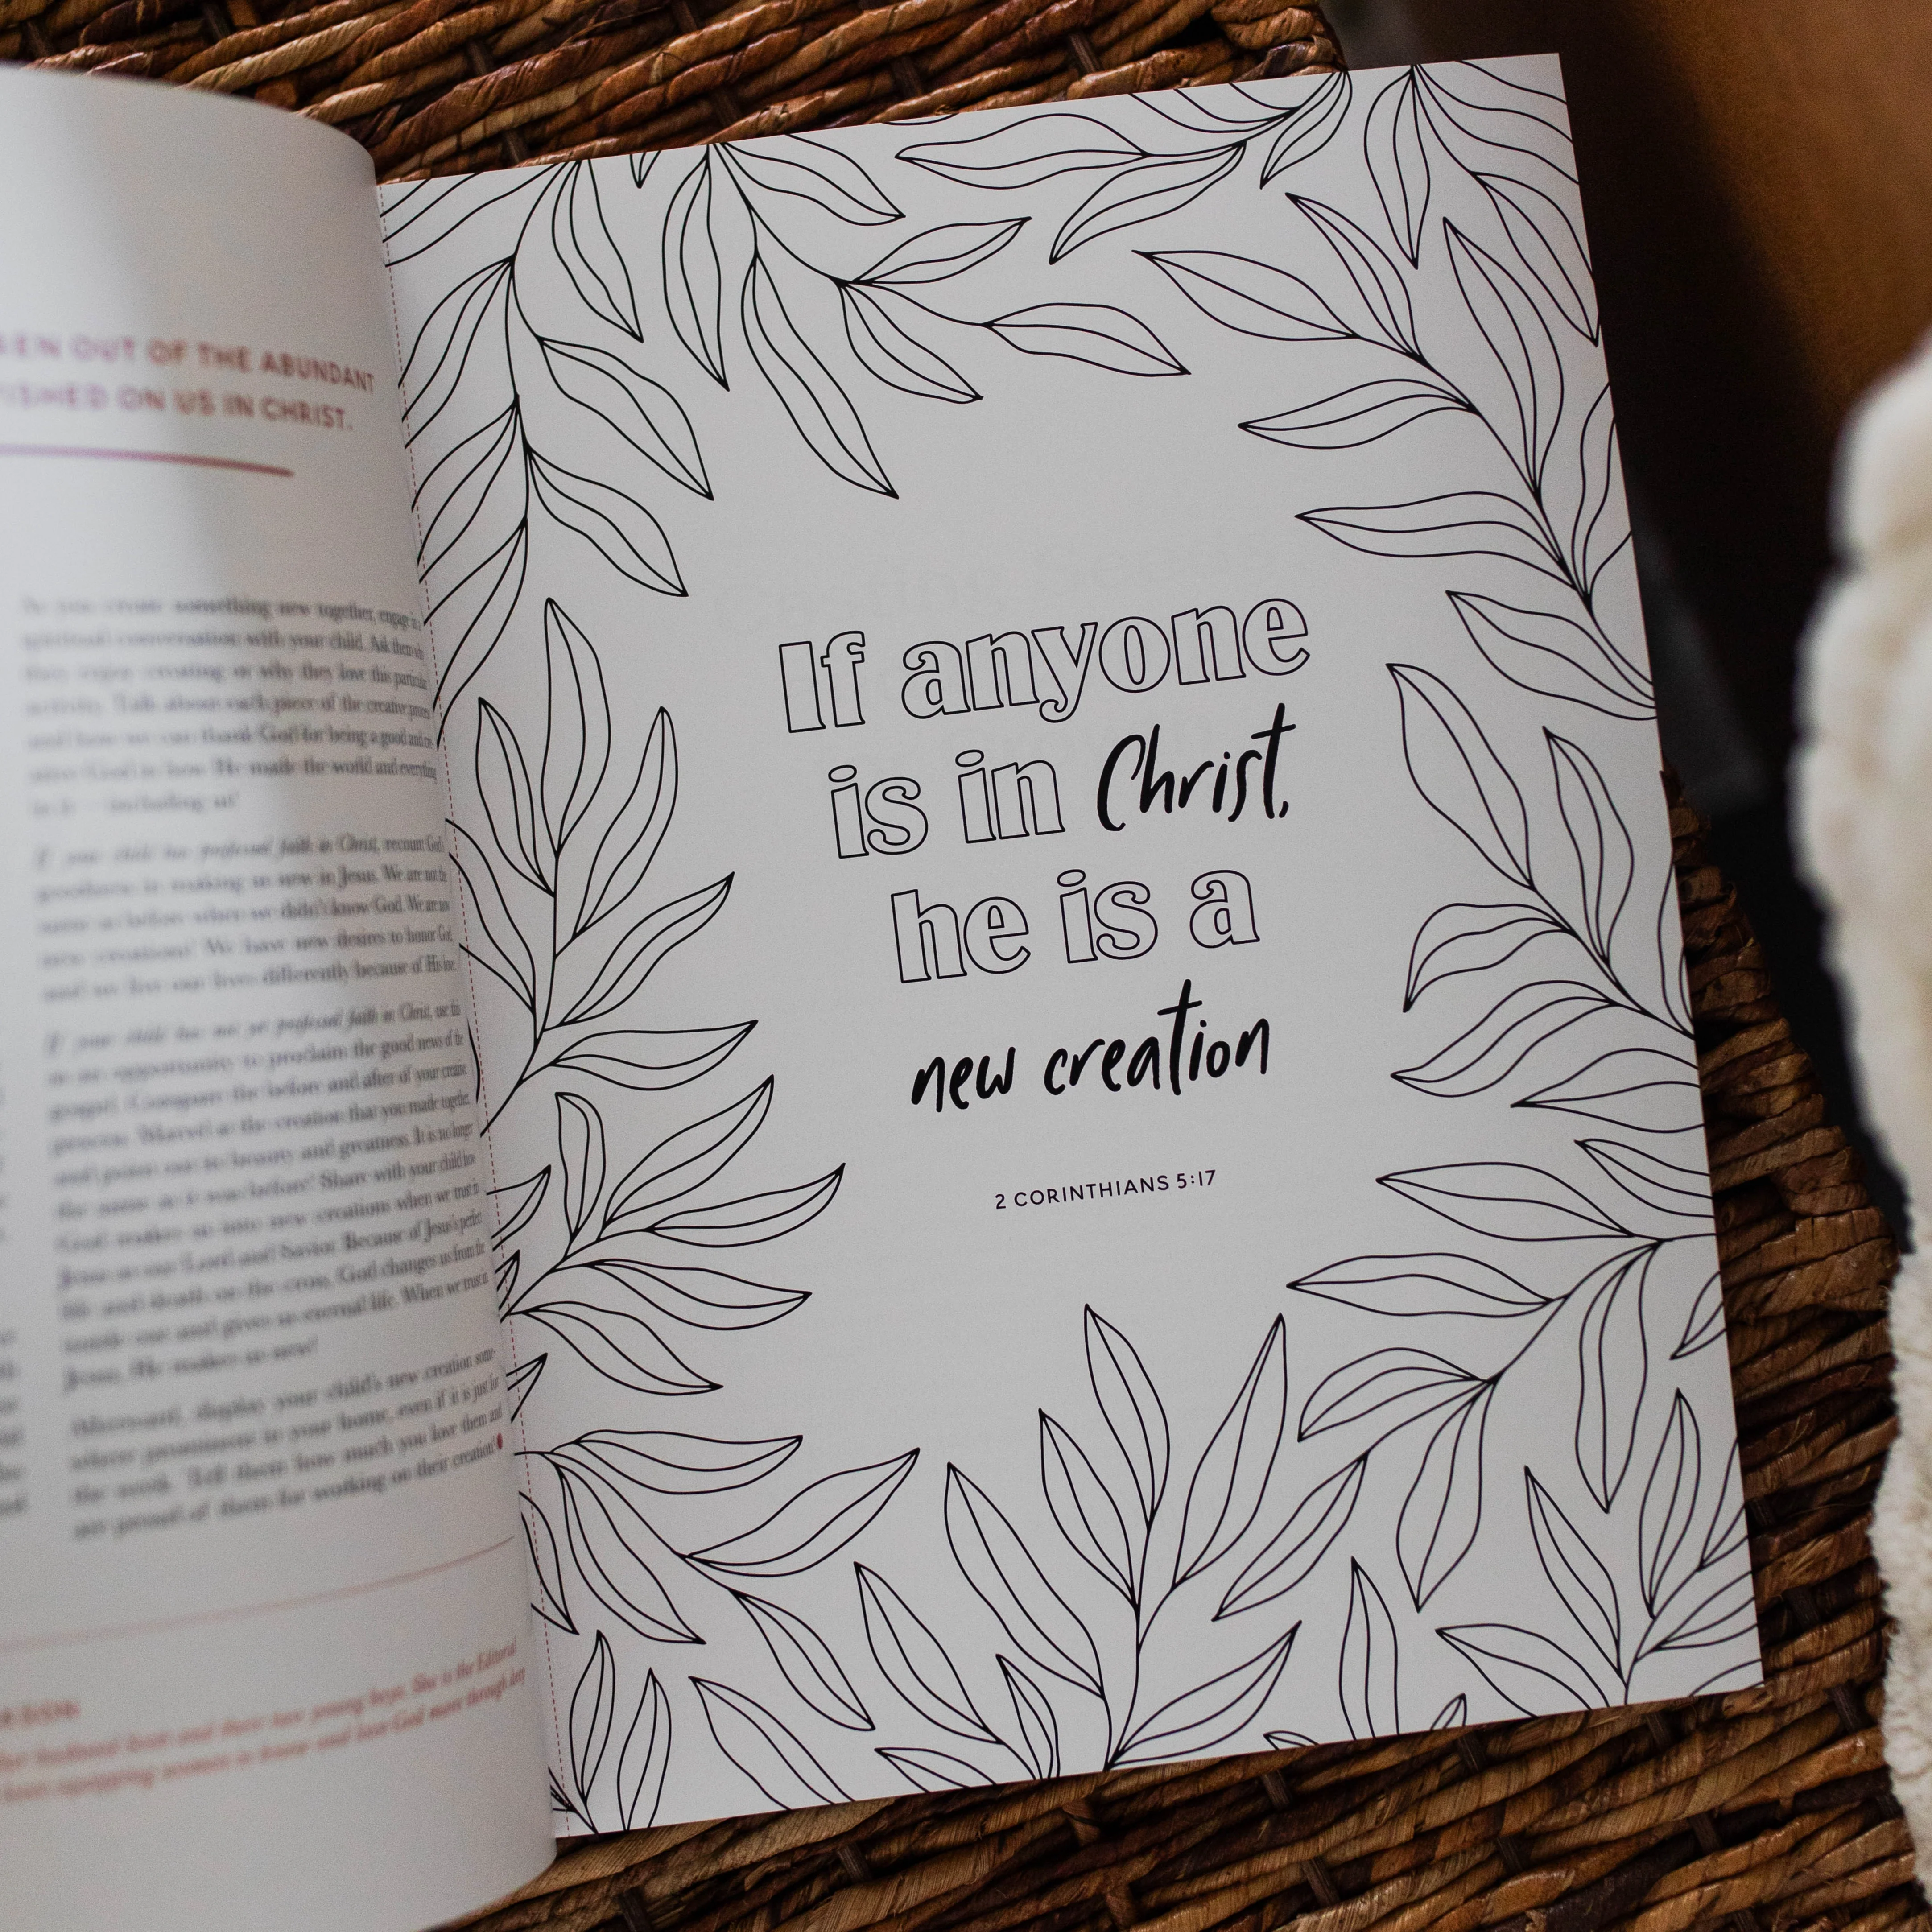 OUT OF THE ABUNDANT
ON US IN CHRIST.
As you create something new together, engage in
spiritual conversation with your child. Ask them
they enjoy creating or why they love this particular
activity. Talk about each piece of the creative process
and how we can thank God for being a good and
God in how He made the world and everything
in it — including us!
If your child has professed faith in Christ, recount God's
goodness in making us new in Jesus. We are not the
same as before when we didn't know God. We are
new creations! We have new desires to honor God,
and we live our lives differently because of His love.
If your child has not yet professed faith in Christ, use this
as an opportunity to proclaim the good news of the
gospel. Compare the before and after of your creative
process. Marvel at the creation that you made together,
and point out its beauty and greatness. It is no longer
the same as it was before! Share with your child how
God makes us into new creations when we trust in
Jesus as our Lord and Savior. Because of Jesus's perfect
life and death on the cross, God changes us from the
inside out and gives us eternal life. When we trust in
Jesus, He makes us new!
Afterward, display your child's new creation some-
where prominent in your home, even if it is just for
the week. Tell them how much you love them and
are proud of them for working on their creation!
her husband and their two young boys. She is the Editorial
equipping women to know and love God more through
If anyone
is in Christ,
he is a
new creation
2 CORINTHIANS 5:17